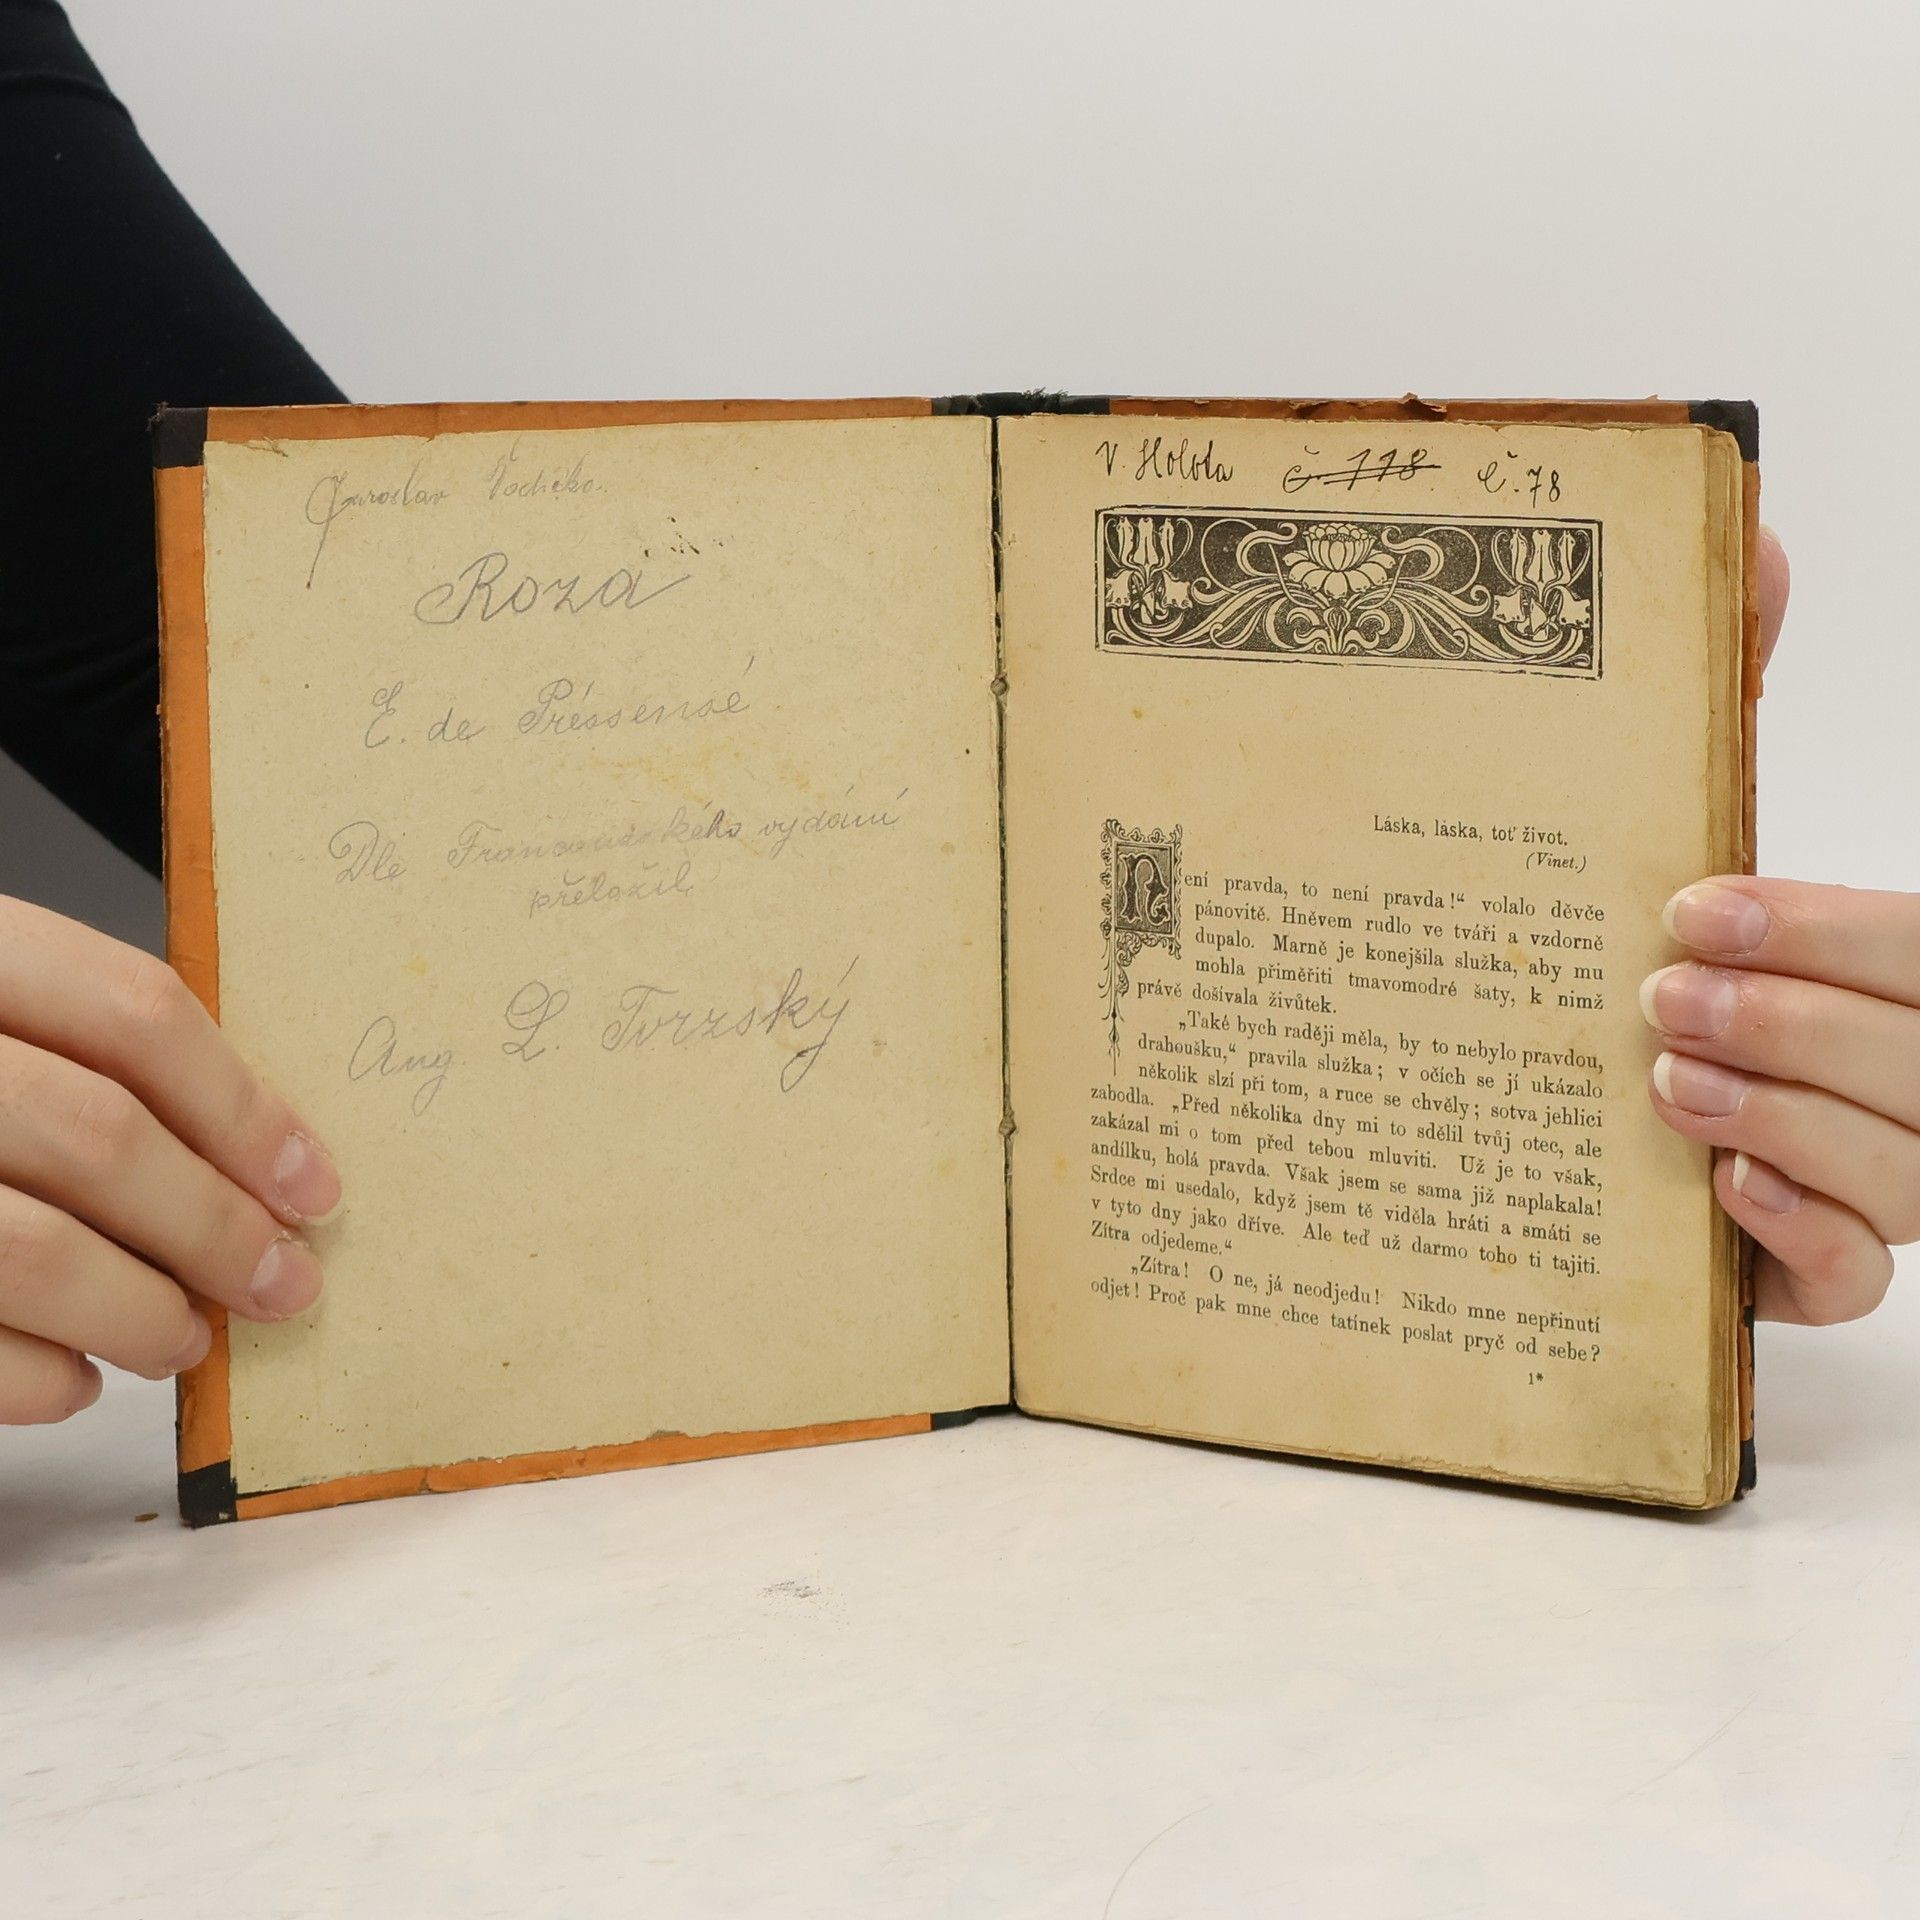 Jaroslav Vodička.
Roza
E. de Préssensé
Dle Francouzského vydání
přeložil
Aug. L. Tvrzský
V. Holota č. 118 č. 78
Láska, láska, toť život.
(Vinet.)
Není pravda, to není pravda!“ volalo děvče
pánovitě. Hněvem rudlo ve tváři a vzdorně
dupalo. Marně je konejšila služka, aby mu
mohla přiměřiti tmavomodré šaty, k nimž
právě došívala živůtek.
„Také bych raději měla, by to nebylo pravdou,
drahoušku,“ pravila služka; v očích se jí ukázalo
několik slzí při tom, a ruce se chvěly; sotva jehlici
zabodla. „Před několika dny mi to sdělil tvůj otec, ale
zakázal mi o tom před tebou mluviti. Už je to však,
andílku, holá pravda. Však jsem se sama již naplakala!
Srdce mi usedalo, když jsem tě viděla hráti a smáti se
v tyto dny jako dříve. Ale teď už darmo toho ti tajiti.
Zítra odjedeme.“
„Zítra! O ne, já neodjedu! Nikdo mne nepřinutí
odjet! Proč pak mne chce tatínek poslat pryč od sebe?
1*